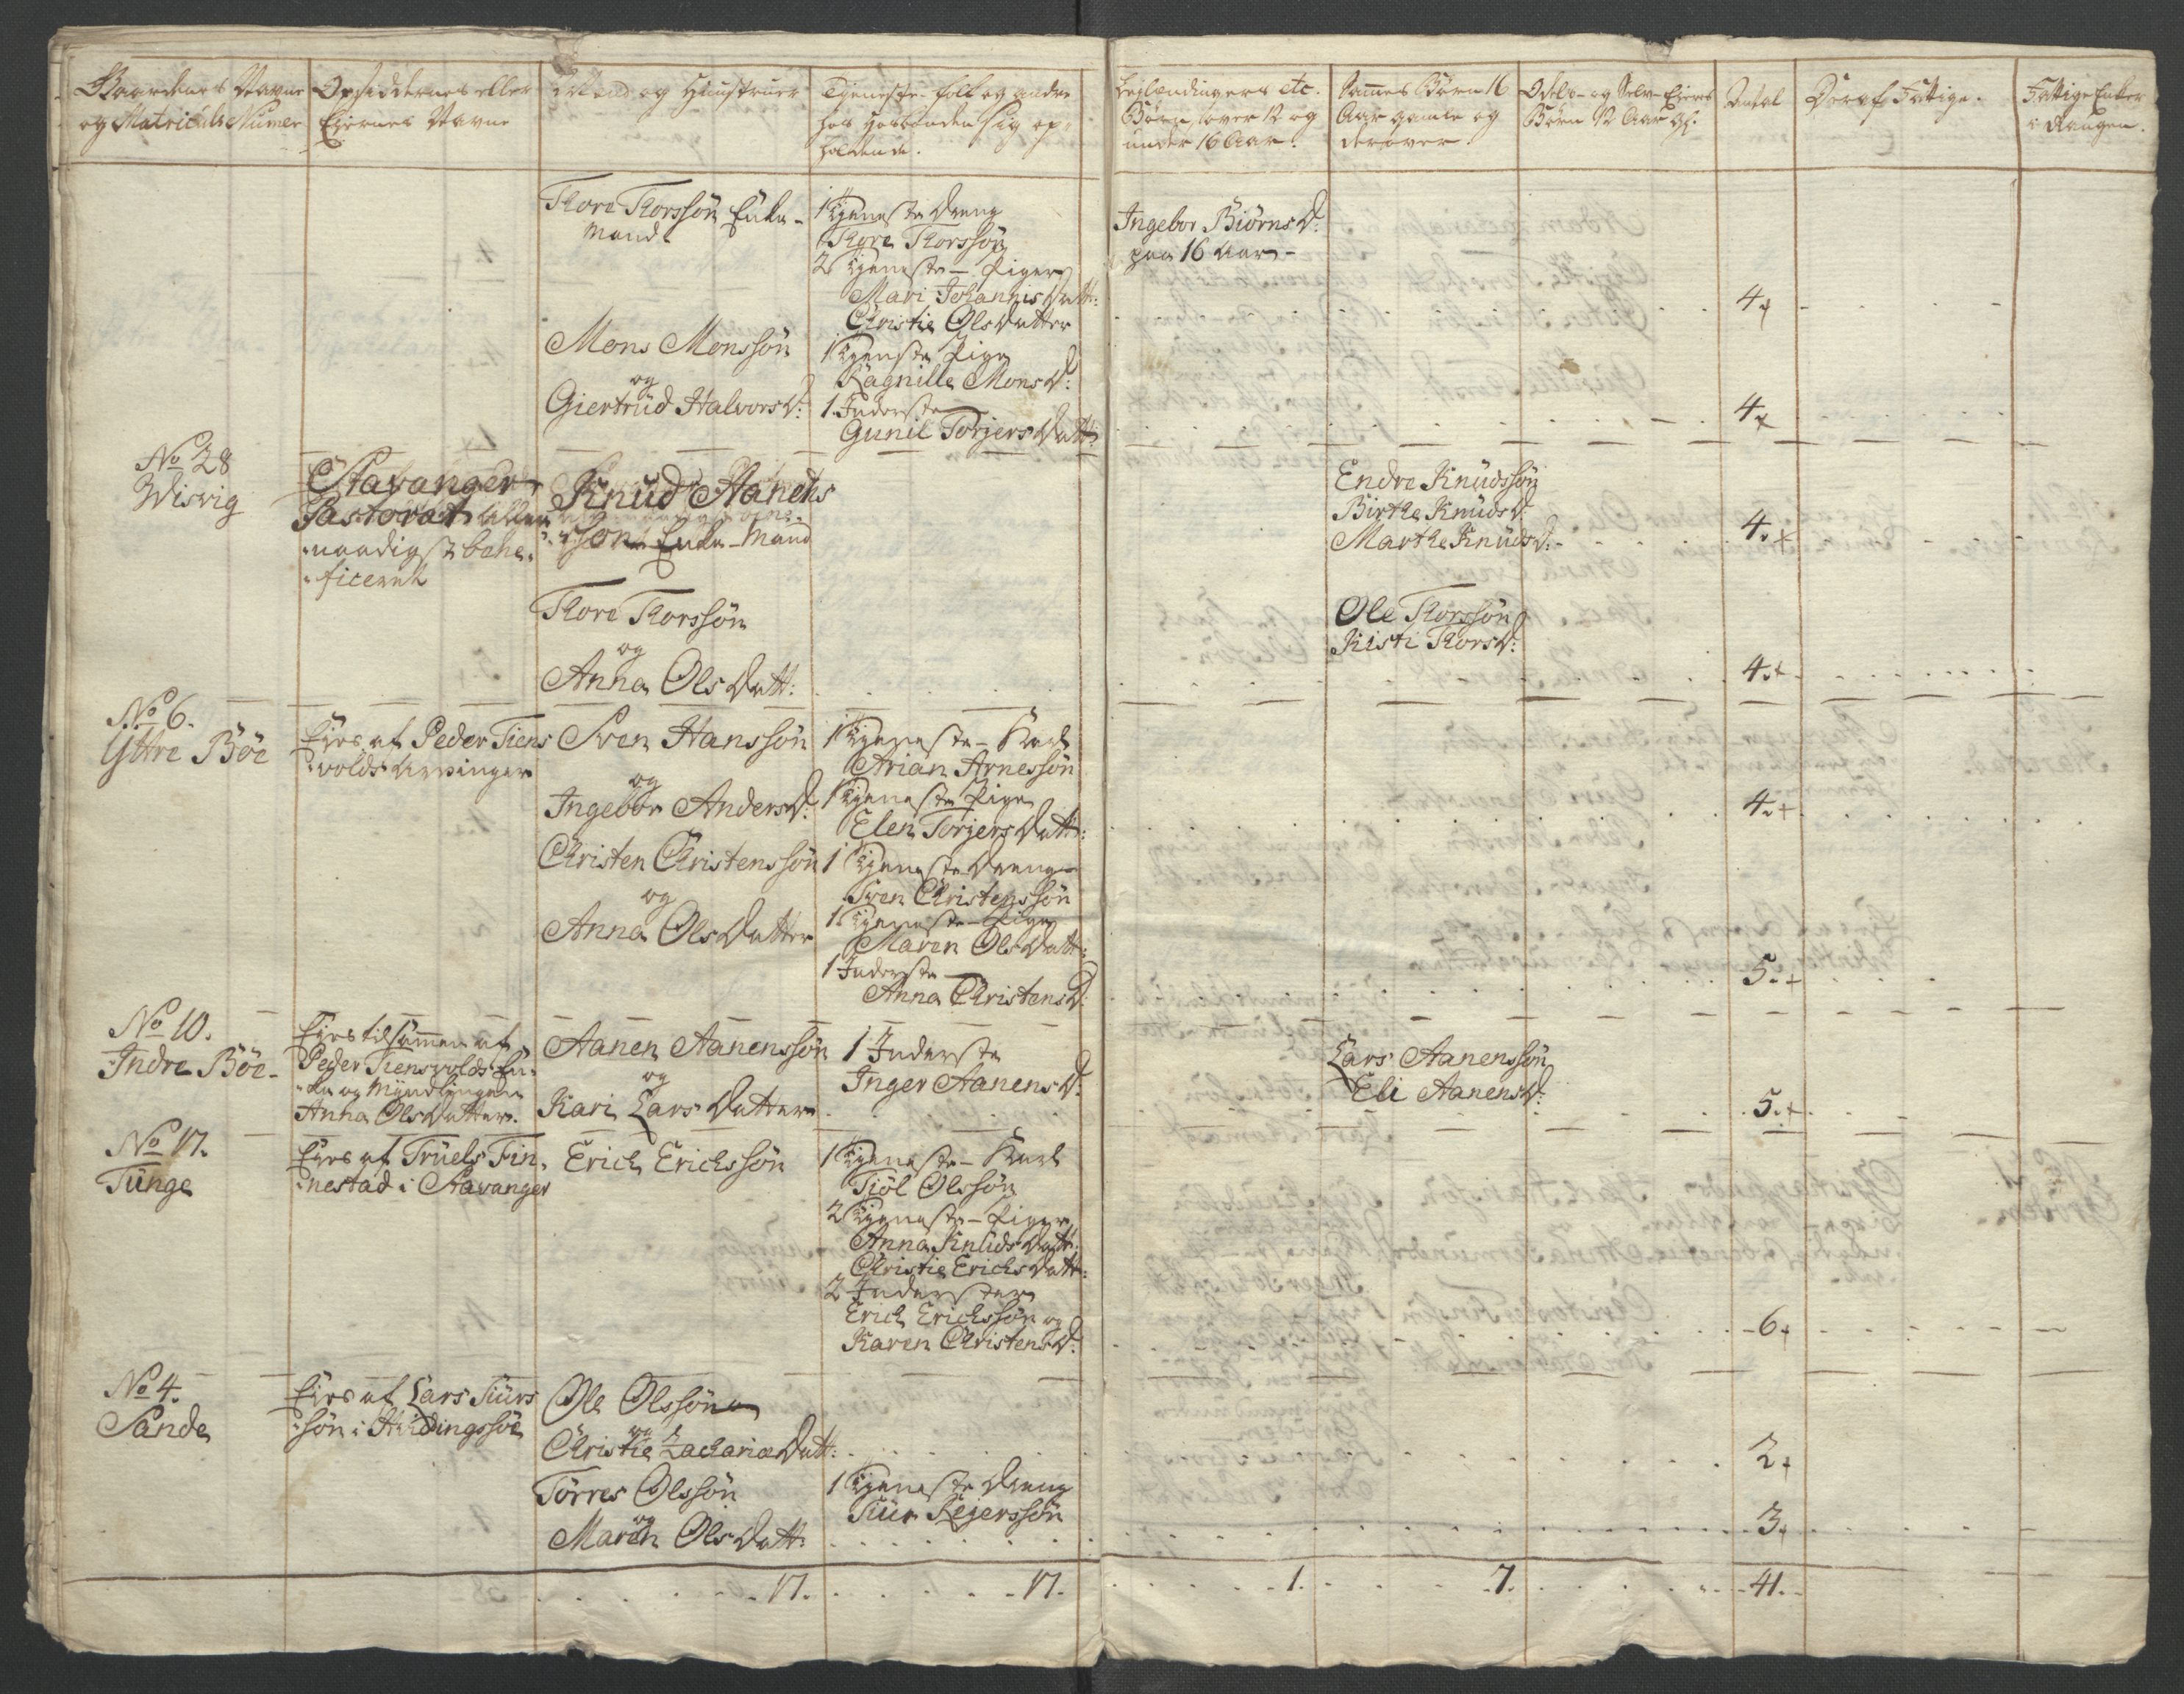 Gaardenes Navne
og Matriculs Numer
Opsiddernes eller
Ejernes Navne
og Huustruer
Tjeneste-folk og andre
hos Hosbonden sig op-
holdende.
Lejlændingers etc.
Børn, over 12 og
under 16 Aar.
Sammes Børn 16
Aar gamle og
derover.
Odels- og Selv-Ejeres
Børn 12 Aar
Antal
Deraf Fattige.
Fattige Enker
i Rangen.
Thore Thorssøn Enke-
mand
1 Tjeneste Dreng
Thore Thorssøn
2 Tjeneste-Piger
Mari Johannis Datt:
Christie Olsdatter
Ingebor Biørns D:
paa 16 Aar-
4
Mons Monssøn
og
Giertrüd Halvors D:
1 Tjeneste Pige
Ragnille Mons D:
1. Inderste
Gunil Torjers Datt:
4
No 28
Wisvig
Stavanger
Pastorat aller-
naadigst bene-
ficeret
Knud Aanens
søn Enke-Mand
Endre Knudssøn
Birthe Knuds D.
Marthe Knuds D:
4.
Thore Thorssøn
og
Anna Ols Datt:
Ole Thorssøn
Kisti Thors D:
4.
No 6.
Yttre Böe
Ejes af Peder Tiens
volds Arvinger
Sven Hanssøn
og
Ingebor Anders D:
1 Tjeneste-Karl
Arian Arnessøn
1 Tjeneste Pige
Elen Torjers Datt:
4.
Christen Christenssøn
og
Anna Ols Datter
1 Tjeneste Dreng
Sven Christenssøn
1. Tjeneste-Pige
Maren Ols Datt:
1 Inderste
Anna Christens D:
5.
No 10.
Indre Böe
Ejes tilsammen af
Peder Tiensvolds En-
ke og Myndlingen
Anna Ols Datter.
Aanen Aanenssøn
og
Kari Lars Datter
1 Inderste
Inger Aanens D:
Lars Aanenssøn
Eli Aanens D:
5.
No 17.
Tünge
Ejes af Trüels Fin-
nestad i Stavanger
Erich Erichssøn
1 Tjeneste-Karl
Tiöl Olssøn
2 Tjeneste-Piger
Anna Knuds Datt:
Christie Erichs Datt:
2 Inderster
Erich Erichssøn og
Karen Christens D:
6
No 4.
Sande
Ejes af Lars Siurs
søn i
Ole Olssøn
og
Christie Zacharias Datt:
2
Törres Olssøn
og
Maren Ols Datt:
1 Tjeneste Dreng
Siur Rejerssøn
3
17.
17.
1.
7.
41.